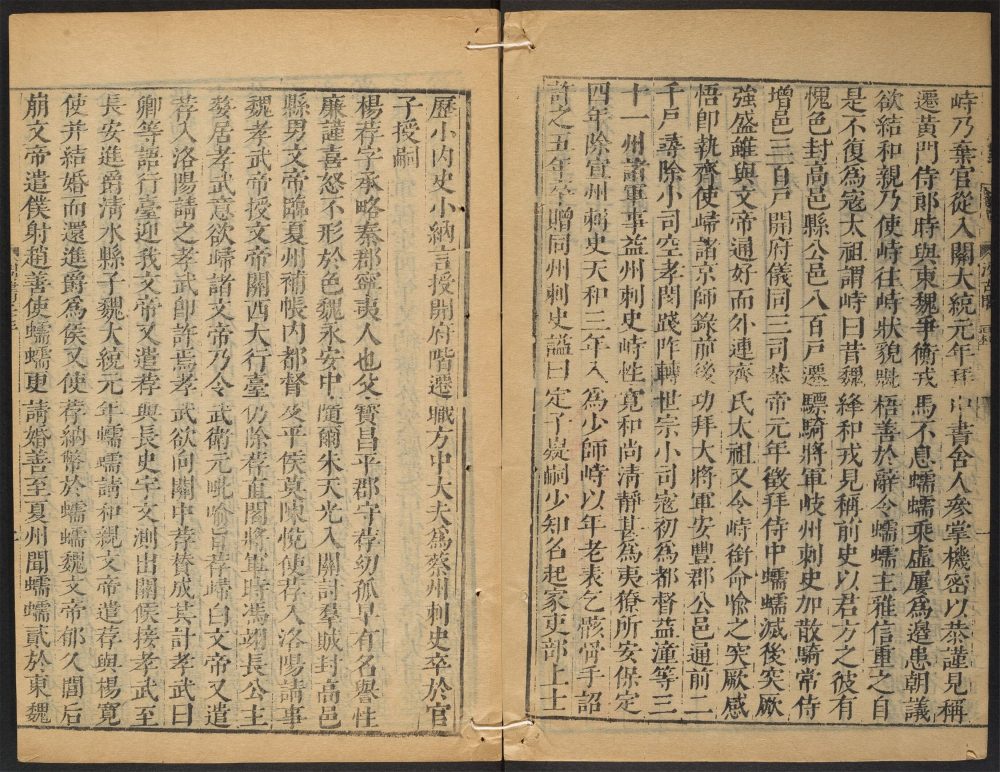 峙乃棄官從入關大統元年拜中書舍人參掌機密以恭謹見稱
遷黃門侍郎時與東魏爭衡戎馬不息蠕蠕乘虛屢為邊患朝議
欲結和親乃使峙往峙狀貌魁梧善於辭令蠕蠕主雅信重之自
是不復為寇太祖謂峙曰昔魏絳和戎見稱前史以君方之彼有
愧色封高邑縣公邑八百戶遷驃騎將軍岐州刺史加散騎常侍
增邑三百戶開府儀同三司恭帝元年徵拜侍中蠕蠕滅後突厥
強盛雖與文帝通好而外連齊氏太祖又令峙銜命喻之突厥感
悟卽執齊使歸諸京師錄前後功拜大將軍安豐郡公邑通前二
千戶尋除小司空孝閔踐阼轉世宗小司寇初為都督益潼等三
十一州諸軍事益州刺史峙性寬和尚清靜甚為夷獠所安保定
四年除宣州刺史天和三年入為少師峙以年老表乞骸骨手詔
許之五年卒贈同州刺史諡曰定子嶷嗣少知名起家吏部上士
歷小內史小納言授開府階遷職方中大夫為蔡州刺史卒於官
子授嗣
楊荐字承略秦郡寧夷人也父寶昌平郡守荐幼孤早有名譽性
廉謹喜怒不形於色魏永安中隨爾朱天光入關討羣賊封高邑
縣男文帝臨夏州補帳內都督及平侯莫陳悅使荐入洛陽請事
魏孝武帝授文帝關西大行臺仍除荐直閤將軍時馮翊長公主
嫠居孝武意欲歸諸文帝乃令武衛元毗喻旨荐歸白文帝又遣
荐入洛陽請之孝武卽許焉孝武欲向關中荐贊成其計孝武曰
卿等語行臺迎我文帝又遣荐與長史宇文測出關候接孝武至
長安進爵清水縣子魏大統元年蠕蠕請和親文帝遣荐與楊寬
使并結婚而還進爵為侯又使荐納幣於蠕蠕魏文帝郁久閭后
崩文帝遣僕射趙善使蠕蠕更請婚善至夏州聞蠕蠕貳於東魏